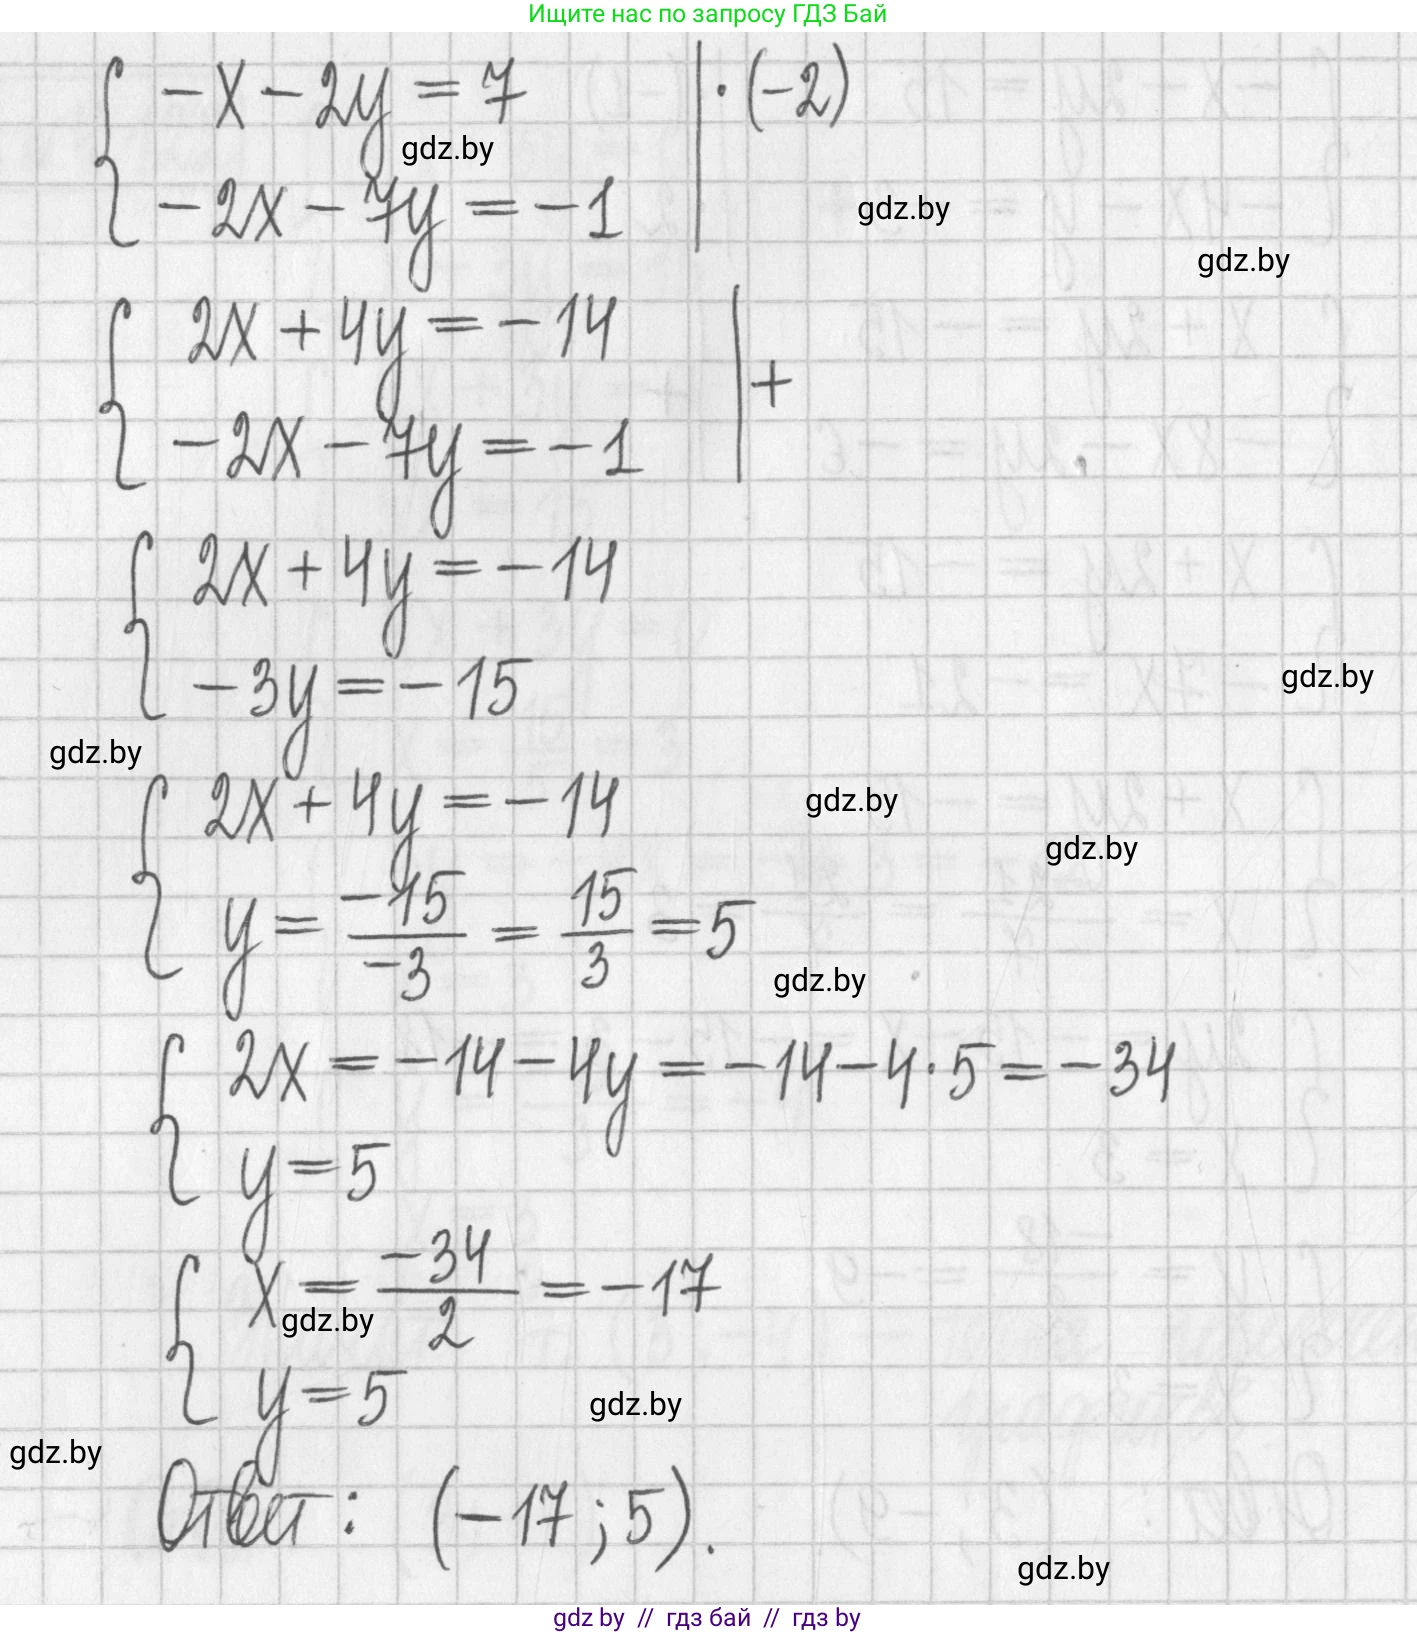 Ищите нас по запросу ГДЗ Бай
-x - 2y = 7 | · (-2)
gdz.by
-2x - 7y = -1
gdz.by
gdz.by
2x + 4y = -14
+
-2x - 7y = -1
2x + 4y = -14
-3y = -15
gdz.by
gdz.by
2x + 4y = -14
gdz.by
gdz.by
y = -15/-3 = 15/3 = 5
gdz.by
2x = -14 - 4y = -14 - 4·5 = -34
y = 5
x = -34/2 = -17
gdz.by
y = 5
gdz.by
gdz.by
Ответ: (-17; 5).
gdz.by
gdz by // гдз бай // гдз by